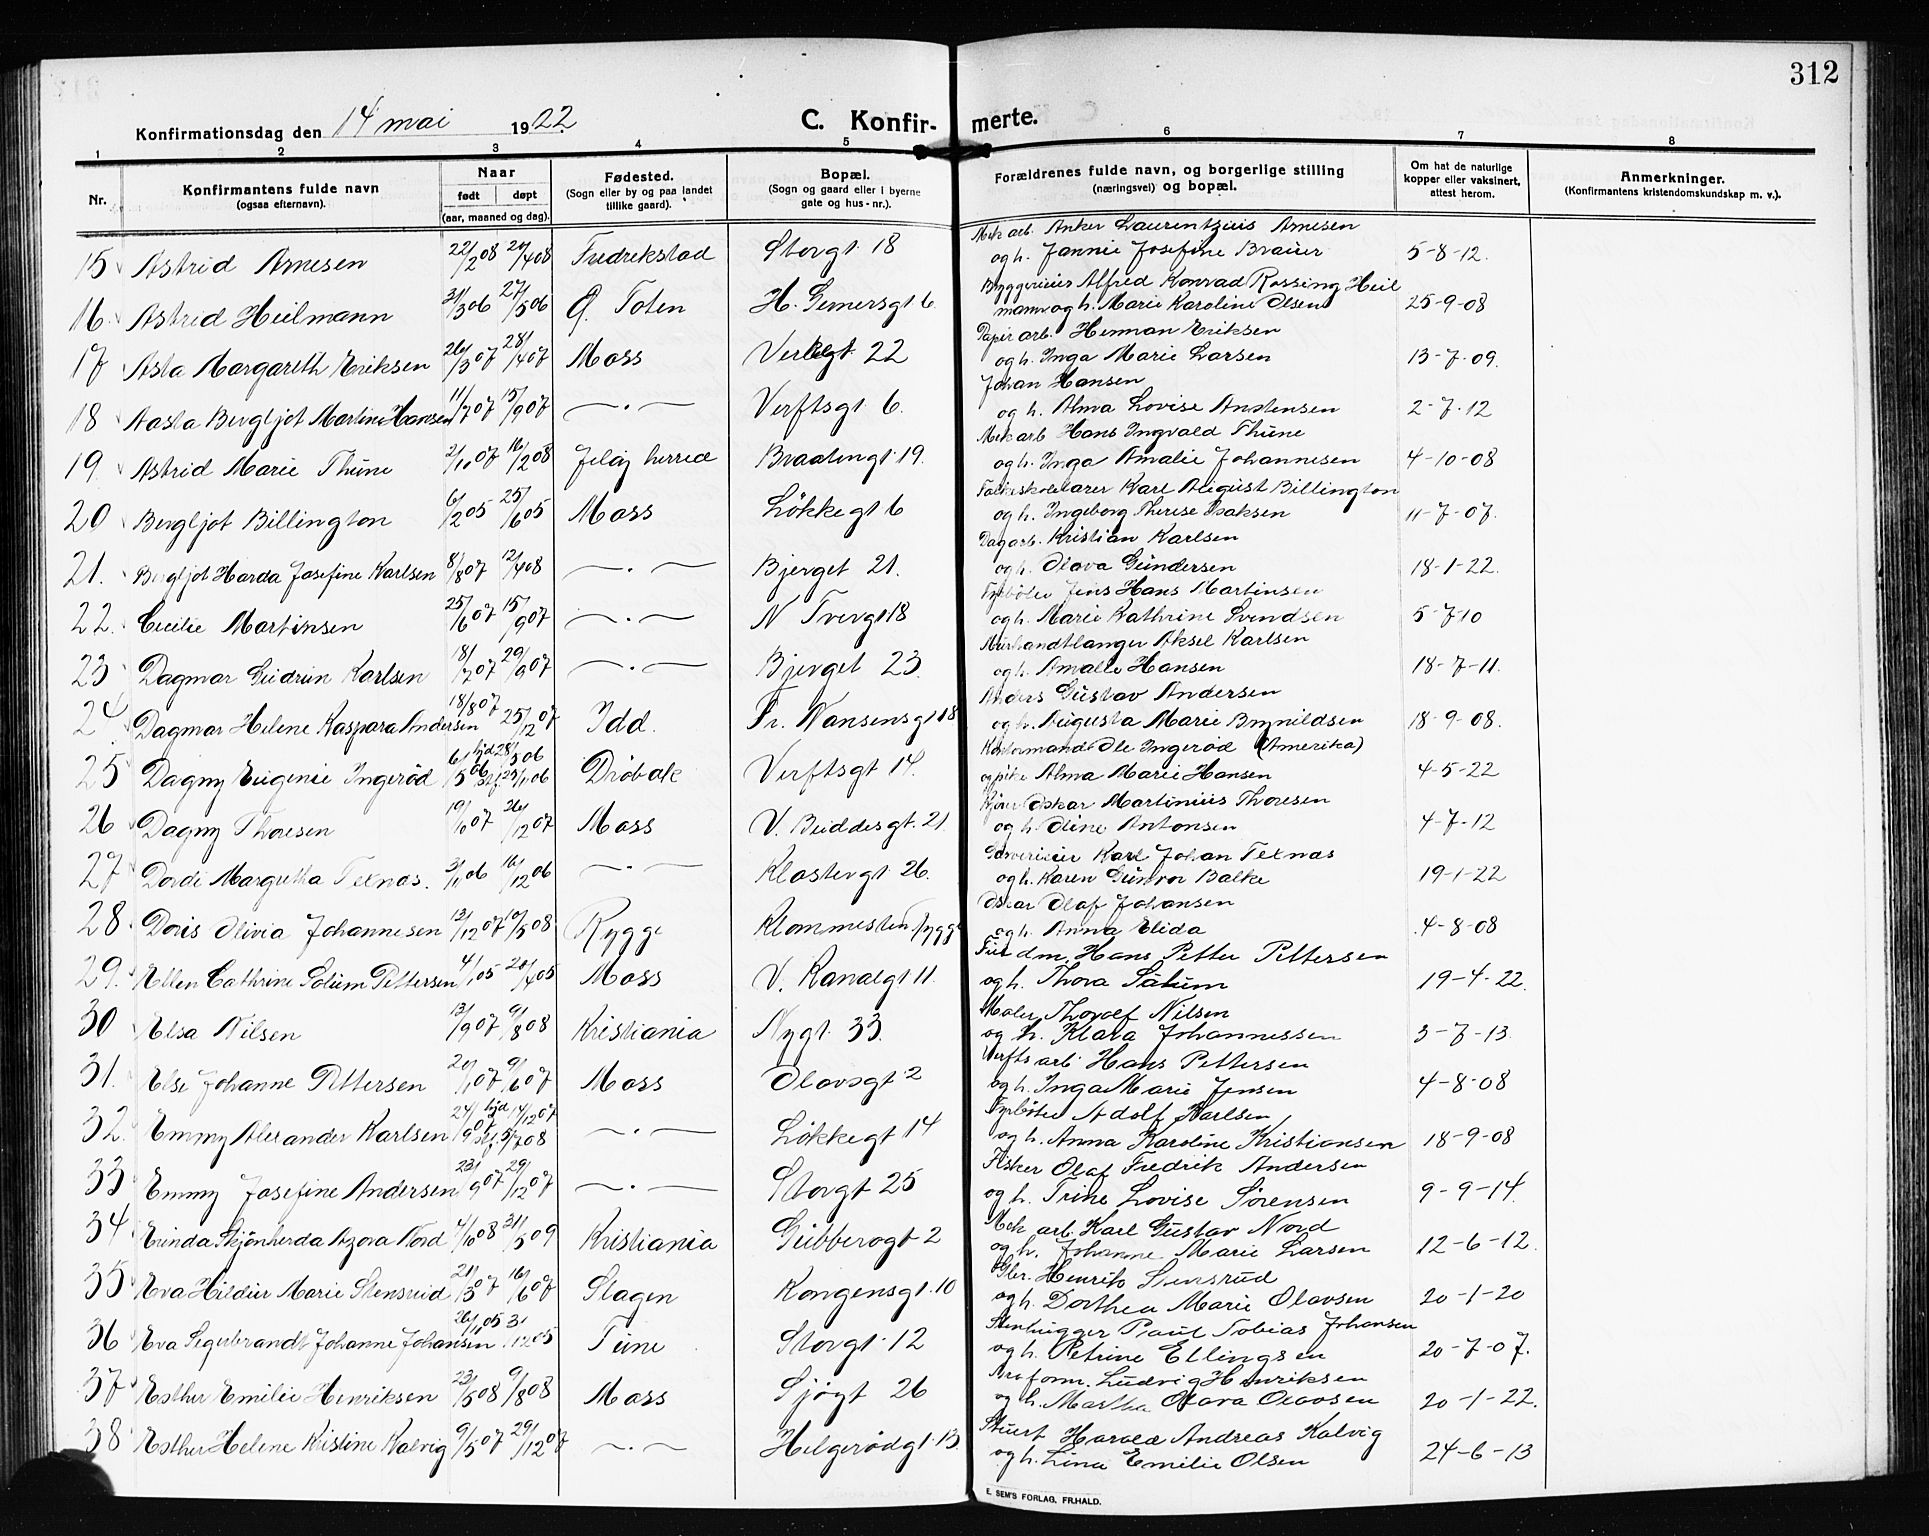 312
Konfirmationsdag den 14 mai 1922.
C. Konfir- merte.
1 2 3 4 5 6 7 8
Nr. Konfirmantens fulde navn (ogsaa efternavn). Naar født døpt (aar, maaned og dag). Fødested. (Sogn eller by og paa landet tillike gaard). Bopæl. (Sogn og gaard eller i byerne gate og hus-nr.). Forældrenes fulde navn, og borgerlige stilling (næringsvei) og bopæl. Om hat de naturlige kopper eller vaksinert, attest herom. Anmerkninger. (Konfirmantens kristendomskundskap m. v.).
15 Astrid Arnesen 22/2 08 20/4 08 Fredrikstad Storgt 18 Mek arb. Anker Laurentzius Arnesen
og h. Jannie Josefine Brauer 5-8-12.
16 Astrid Heilmann 31/3 06 27/5 06 Ø. Toten H. Gernersgt. 6 Byggereier Alfred Konrad Rossing Heil
mann og h. Marie Karoline Olsen 25-9-08
17 Asta Margareth Eriksen 26/3 07 28/4 07 Moss Verkegt 22 Papir arb. Herman Eriksen
og h. Inga Marie Larsen 13-7-09.
18 Aasta Bergljot Martine Hansen 11/7 07 15/9 07 —.— Verftsgt 6. Johan Hansen
og h. Alma Lovise Anstensen 2-7-12
19. Astrid Marie Thune 2/10 07 16/2 08 Jeløy herred Braatengt 19. Mek arb Hans Ingvald Thune
og h. Inga Amalie Johannesen 4-10-08
20 Bergljot Billington 6/2 05 25/6 05 Moss Løkkegt 6 Folkeskolelærer Karl August Billington
og h. Ingeborg Therese Isaksen 11-7-07.
21. Bergljot Harda Josefine Karlsen 8/8 07 12/4 08 —.— Bjerget 21. Dagarb. Kristian Karlsen
og h. Olava Gundersen 18-1-22.
22. Cecilie Martinsen 25/6 07 15/9 07 —.— N Tvergt 18 Fyrbøter Jens Hans Martinsen
og h. Marie Kathrine Svendsen 5-7-10
23 Dagmar Gudrun Karlsen 18/7 07 29/9 07 —.— Bjerget 23. Murhandtlanger Aksel Karlsen
og h. Amalie Hansen 18-7-11.
24. Dagmar Helene Kaspara Andersen 18/8 07 25/12 07 Idd. Fr. Nansensgt 18 Anders Gustav Andersen
og h. Augusta Marie Brynildsen 18-9-08.
25 Dagny Eugenie Ingerød 6/5 06 hjd 28/5 06 25/11 06 Drøbak Verftsgt 14. Kontormand Ole Ingerød (Amerika)
og pike Alma Marie Hansen 4-5-22
26 Dagny Thoresen 19/10 07 26/12 07 Moss V. Buddesgt. 21. Kjører Oskar Martinius Thoresen
og h. Oline Antonsen 4-7-12
27 Dordi Margretha Texnæs. 3/11 06 16/12 06 —.— Klostergt 26. Garverieier Karl Johan Texnæs
og h. Karen Gunvor Balke 19-1-22
28. Doris Olivia Johannesen 13/12 07 10/5 08 Rygge Klommesten Rygge Oskar Olaf Johansen
og h. Anna Elida 4-8-08
29. Ellen Cathrine Solum Pettersen 4/1 05 20/4 05 Moss V. Kanalgt 11. Hans Petter Pettersen
og h. Thora Solum 19-4-22.
30 Elsa Nilsen 13/9 07 9/8 08 Kristiania Nygt. 33. Maler Thoralf Nilsen
og h. Klara Johannessen 3-7-13.
31. Else Johanne Pettersen 20/1 07 9/6 07 Moss Olavsgt 2 Verfts arb. Hans Pettersen
og h. Inga Marie Jensen 4-8-08
32. Emmy Alexander Karlsen 24/9 07 hjd 14/12 07 5/7 08 —.— Løkkegt 14 Fyrbøter Adolf Karlsen
og h. Anna Karoline Kristiansen 18-9-08
33 Emmy Josefine Andersen 23/9 07 29/12 07 —.— Storgt 25 Fisker Olaf Fredrik Andersen
og h. Trine Lovise Sørensen 9-9-14.
34 Erinda Skjønherda Azora Nord 4/10 08 31/5 09 Kristiania Gubberogt 2 Mek arb. Karl Gustav Nord
og h. Johanne Marie Larsen 12-6-12.
35 Eva Hildur Marie Stensrud 21/3 07 16/6 07 Slagen Kongensgt. 10 Henrik Stensrud
og h. Dorthea Marie Olavsen 20-1-20
36 Eva Sigerbrandt Johanne Johansen. 26/11 05 31/12 05 Tune Storgt 12 Stenhugger Paul Tobias Johansen
og h. Petrine Ellingsen 20-7-07.
37 Esther Emilie Henriksen 23/5 08 9/8 08 Moss Sjøgt 26 Ludvig Henriksen
og h. Martha Olava Olavsen 20-1-22.
38 Esther Helene Kristine Kalvig 9/5 07 29/12 07 —.— Helgerødgt. 13. Stuert Harald Andreas Kalvig
og h. Lina Emilie Olsen 24-6-13
E. SEM'S FORLAG, FR.HALD.